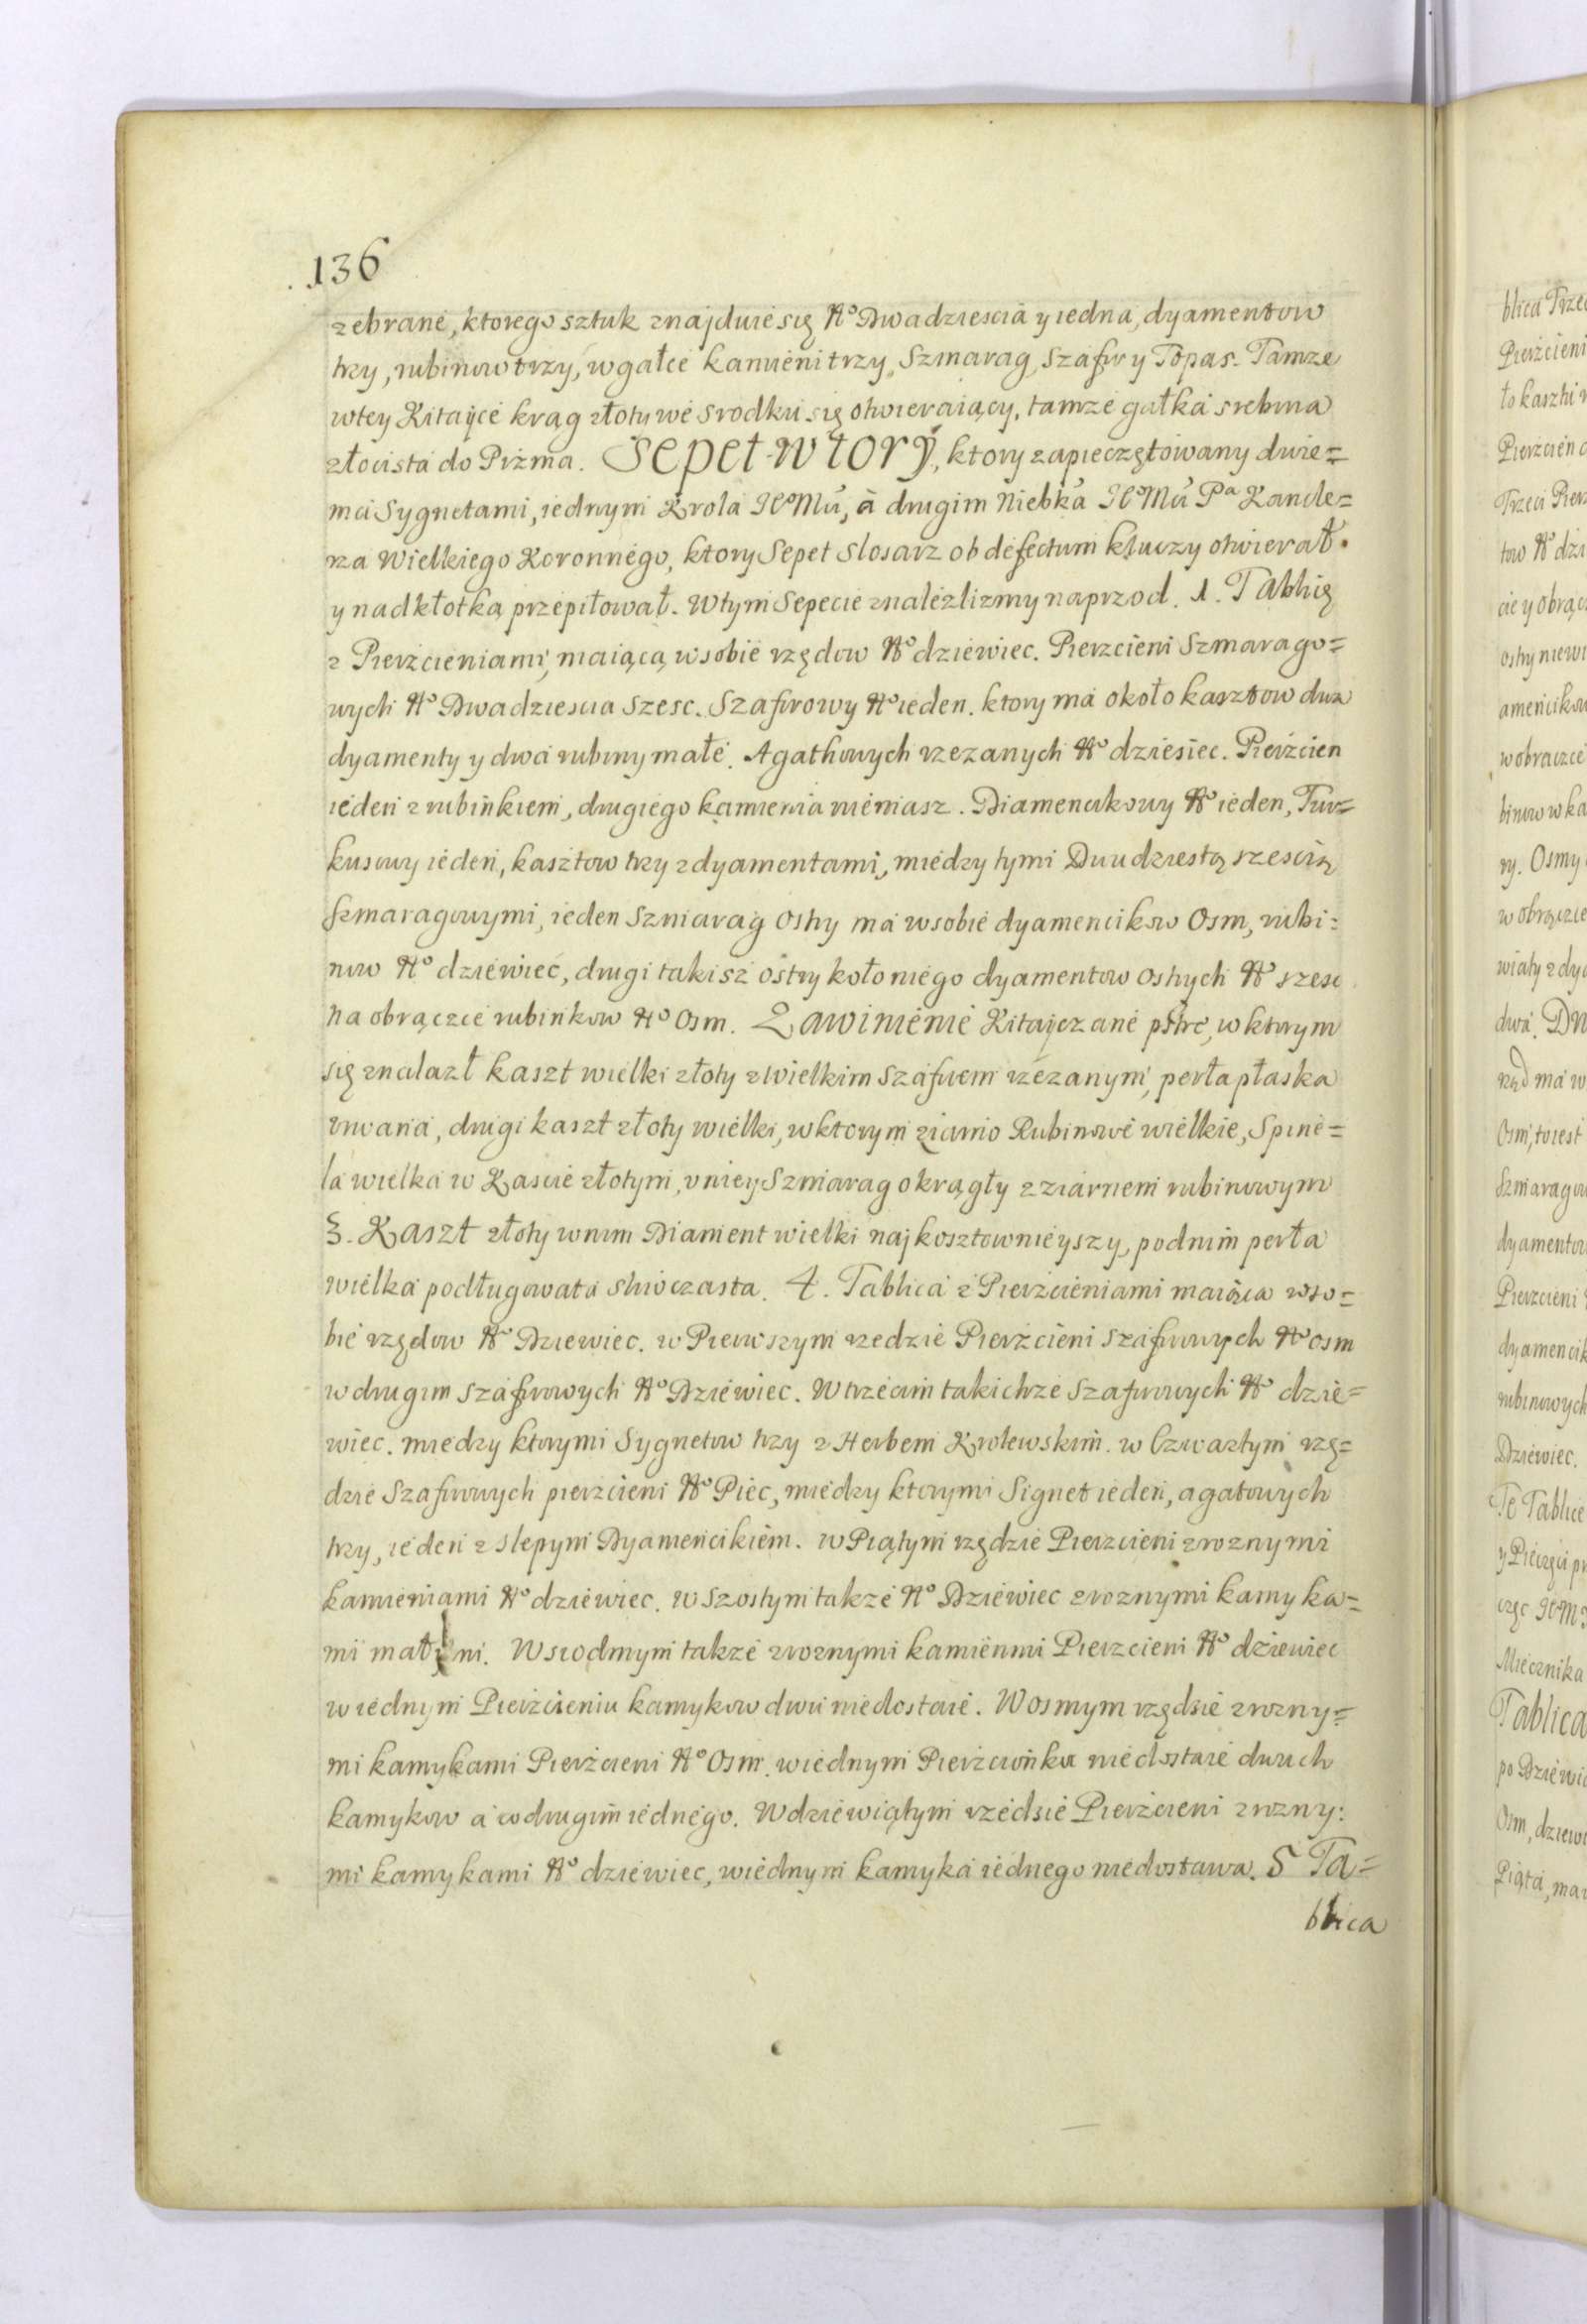 136
zebrane, ktorego sztuk znajduie się No Dwadziescia y iedna, dyamentow
trzy, rubinow trzy, w gałce kamieni trzy, Szmarag, szafir y Topas. Tamze
w tey Kitayce krąg złoty we srodku się otwieraiący, tamze gałka srebrna
złocista do Pizma. Sepet wtory, ktory zapieczętowany dwie=
ma Sygnetami, iednym Krola JeoMu, à drugim Niebka JeoMu Pa Kancle=
rza Wielkiego Koronnego, ktory Sepet slosarz ob defectum kluczy otwierał.
y nad kłotką przepiłował. W tym Sepecie znalezlizmy naprzod. 1. Tablicę
z Pierzcieniami, maiącą w sobie rzędow No dziewiec. Pierzcieni Szmarago=
wych No Dwadziescia Szesc. Szafirowy No ieden. ktory ma około kasztow dwa
dyamenty y dwa rubiny małe. Agathowych rzezanych No dziesiec. Pierzcien
ieden z rubinkiem, drugiego kamienia niemasz. Diamencikowy No ieden, Tur=
kusowy ieden, kasztow trzy z dyamentami, miedzy tymi Dwudziestą szescią
szmaragowymi, ieden Szmarag ostry ma w sobie dyamencikow Osm, rubi=
now No dziewiec, drugi takisz ostry koło niego dyamentow ostrych No szesc
na obrączce rubinkow No Osm. Zawinienie Kitayczane pstre, w ktorym
się znalazł kaszt wielki złoty z wielkim szafirem rzezanym, perła płaska
urwana, drugi kaszt złoty wielki, w ktorym ziarno Rubinowe wielkie, Spine=
la wielka w Kascie złotym, v niey Szmarag okrągły z ziarnem rubinowym
3. Kaszt złoty w nim Diament wielki najkosztownieyszy, pod nim perła
wielka podługowata słuczasta. 4. Tablica z Pierzcieniami maiąca w so=
bie rzędow No Dziewiec. w Pierwszym rzedzie Pierzcieni szafirowych No osm
w drugim szafirowych No Dziewiec. W trzecim takichze szafirowych No dzie=
wiec. miedzy ktorymi Sygnetow trzy z Herbem Krolewskim. w Czwartym rzę=
dzie Szafirowych pierzcieni No Piec, miedzy ktorymi Signet ieden, agatowych
trzy, ieden z slepym Dyamencikiem. w Piątym rzędzie Pierzcieni z roznymi
kamieniami No dziewiec. w Szostym takze No Dziewiec z roznymi kamyka=
mi małymi. W siodmym takze z roznymi kamienmi Pierzcieni No dziewiec
w iednym Pierzcieniu kamykow dwu niedostaie. W osmym rzędzie z rozny=
mi kamykami Pierzcieni No Osm. w iednym Pierzcionku niedostaie dwuch
kamykow a w drugim iednego. W dziewiątym rzedzie Pierzcieni z rozny:
mi kamykami No dziewiec, w iednym kamyka iednego niedostawa. 5 Ta=
blica